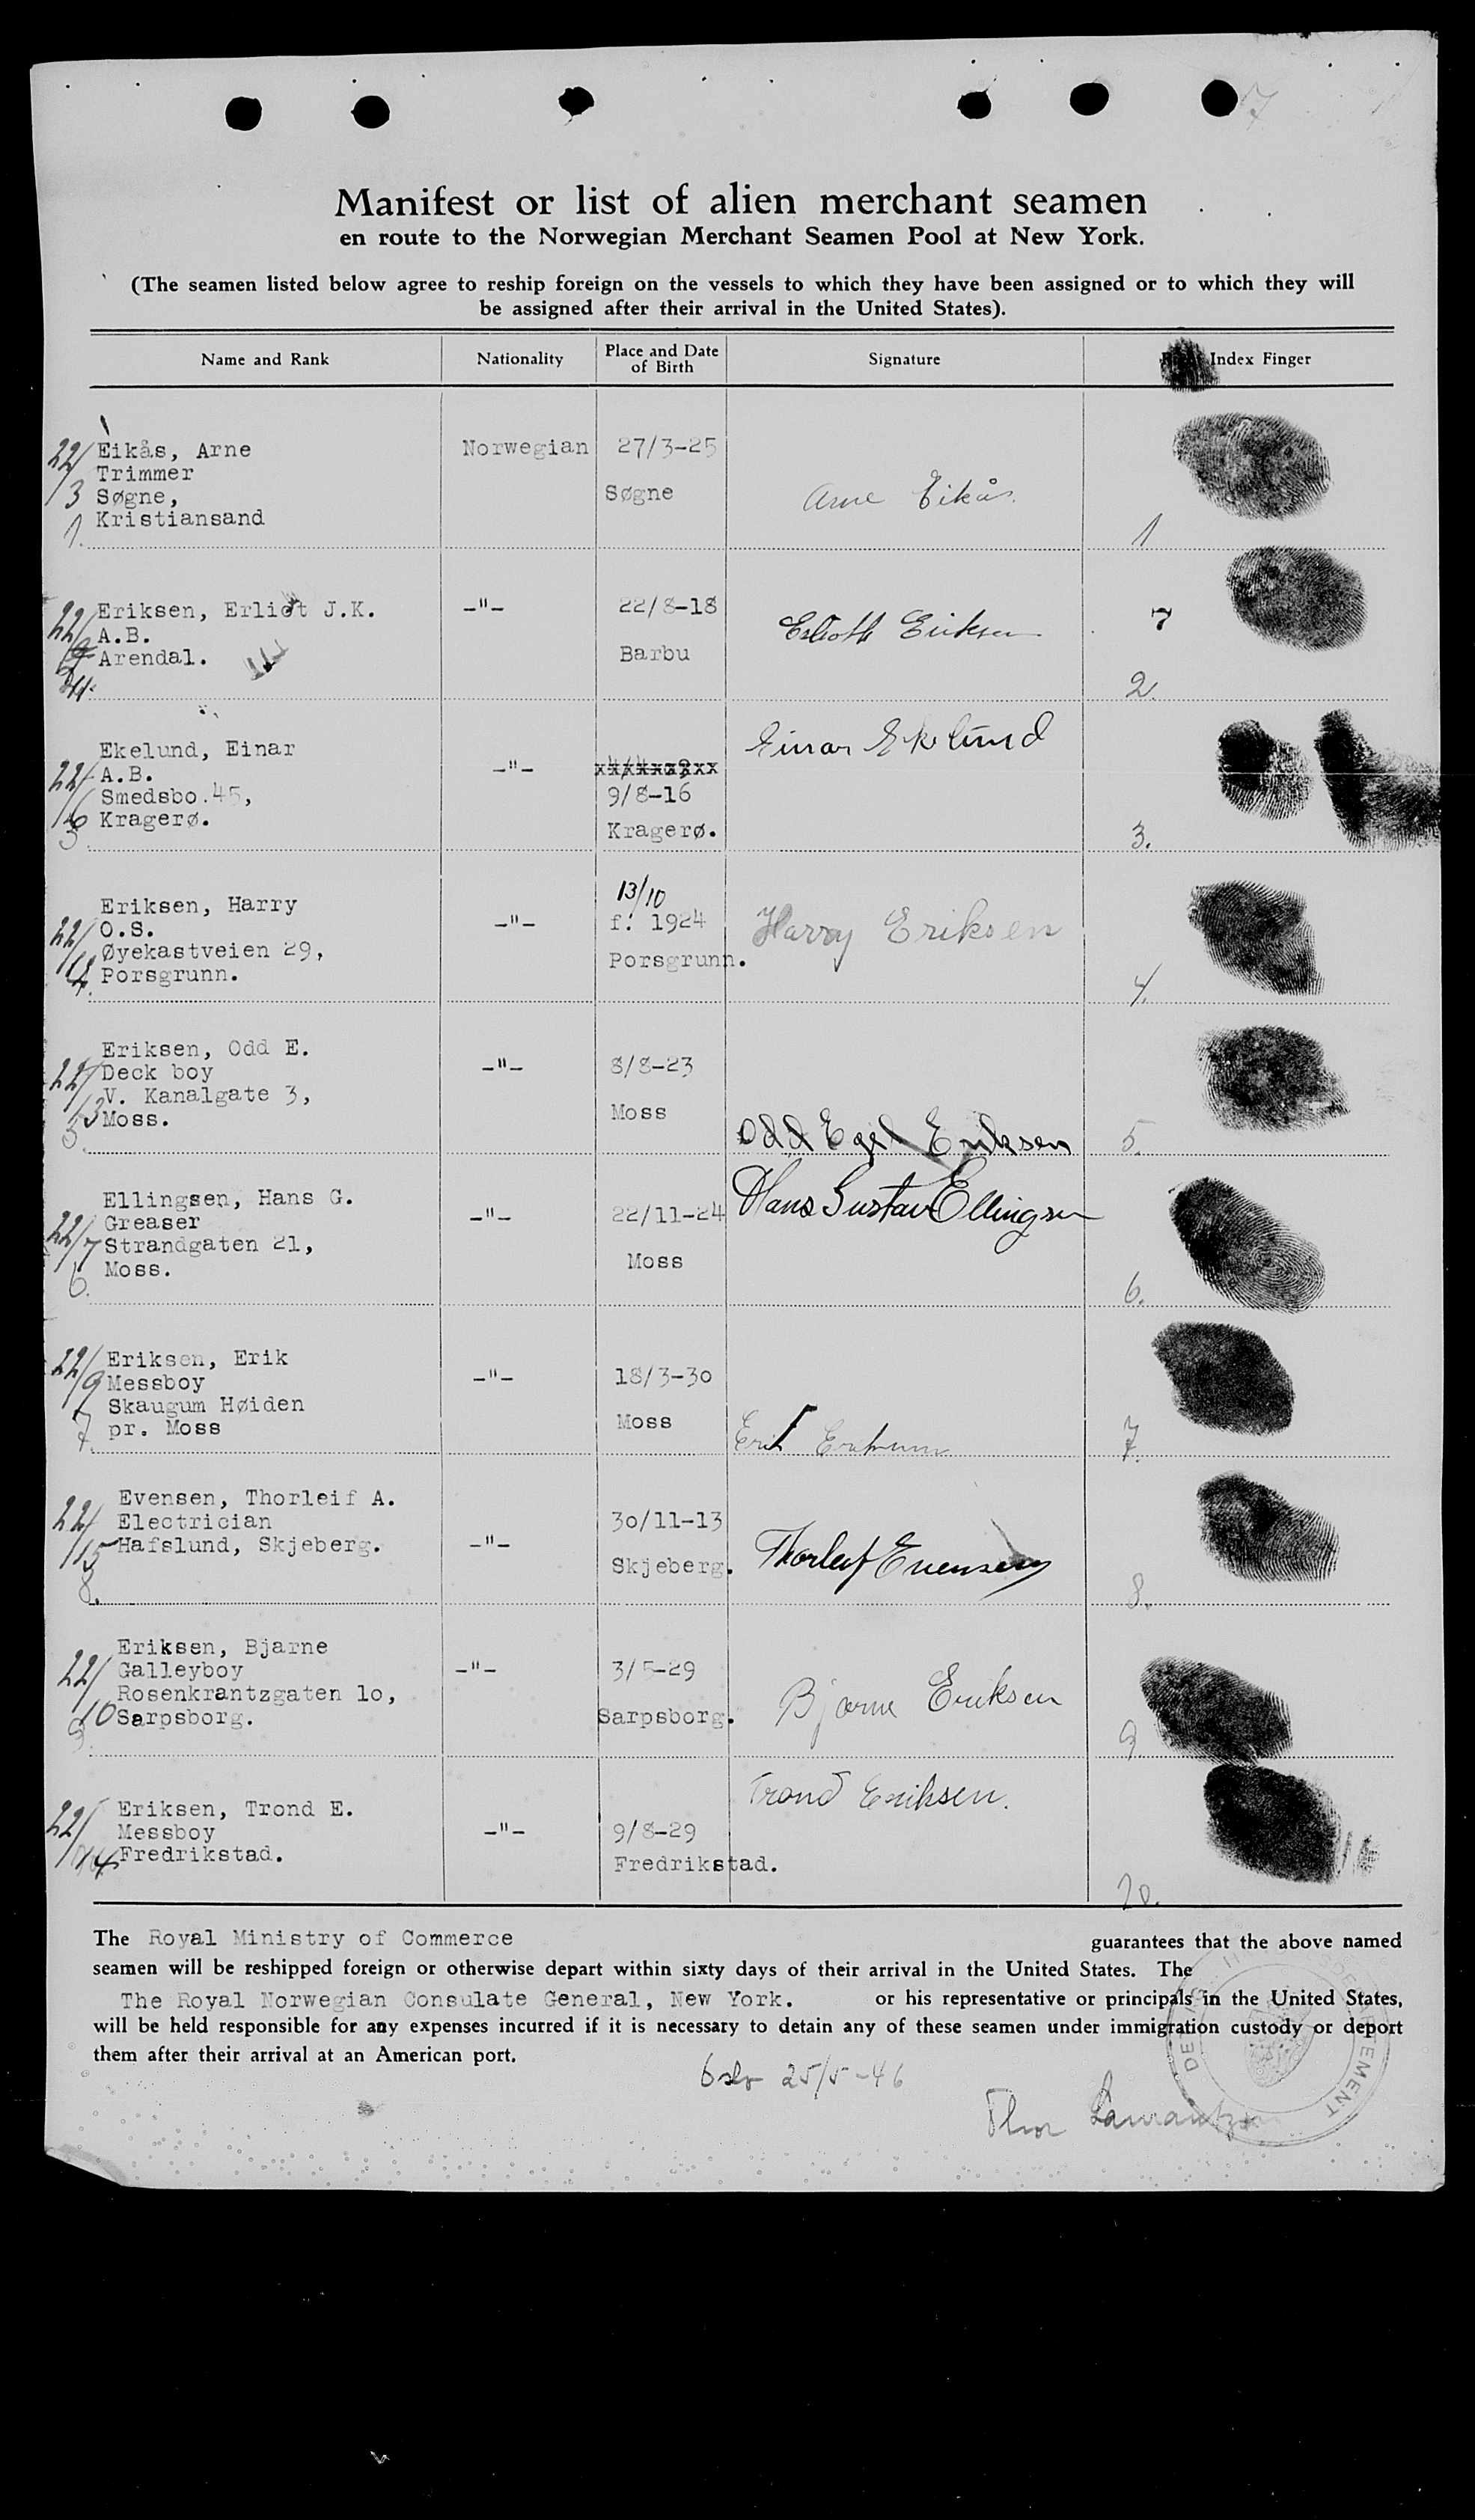 7
Manifest or list of alien merchant seamen
en route to the Norwegian Merchant Seamen Pool at New York.
(The seamen listed below agree to reship foreign on the vessels to which they have been assigned or to which they will
be assigned after their arrival in the United States).
Name and Rank Nationality Place and Date of Birth Signature Index Finger
22/3 1. Eikås, Arne
Trimmer
Søgne,
Kristiansand
Norwegian
27/3-25
Søgne
Arne Eikås.
1
22/ Eriksen, Erliot J.K.
A.B.
Arendal.
-"-
22/8-18
Barbu
Eriksen
7
2.
22/6 3 Ekelund, Einar
A.B.
Smedsbo.45,
Kragerø.
-"-
9/8-16
Kragerø.
Einar Ekelund
3.
22/ 4. Eriksen, Harry
O.S.
Øyekastveien 29,
Porsgrunn.
-"-
13/10
f. 1924
Porsgrunn.
Harry Eriksen
4.
22/13 5. Eriksen, Odd E.
Deck boy
V. Kanalgate 3,
Moss.
-"-
8/8-23
Moss
Odd Egil Eriksen
5.
22/7 6. Ellingsen, Hans G.
Greaser
Strandgaten 21,
Moss.
-"-
22/11-24
Moss
Hans Gustav Ellingsen
6.
22/9 7. Eriksen, Erik
Messboy
Skaugum Høiden
pr. Moss
-"-
18/3-30
Moss
Erik
7.
22/15 8. Evensen, Thorleif A.
Electrician
Hafslund, Skjeberg.
-"-
30/11-13
Skjeberg.
Thorleif Evensen
8.
22/10 9. Eriksen, Bjarne
Galleyboy
Rosenkrantzgaten 1o,
Sarpsborg.
-"-
3/5-29
Sarpsborg.
Bjarne Eriksen
9.
22/14 Eriksen, Trond E.
Messboy
Fredrikstad.
-"-
9/8-29
Fredrikstad.
Trond Eriksen.
10.
The Royal Ministry of Commerce guarantees that the above named
seamen will be reshipped foreign or otherwise depart within sixty days of their arrival in the United States. The
The Royal Norwegian Consulate General, New York. or his representative or principals in the United States,
will be held responsible for any expenses incurred if it is necessary to detain any of these seamen under immigration custody or deport
them after their arrival at an American port.
Oslo 25/5-46
Thor